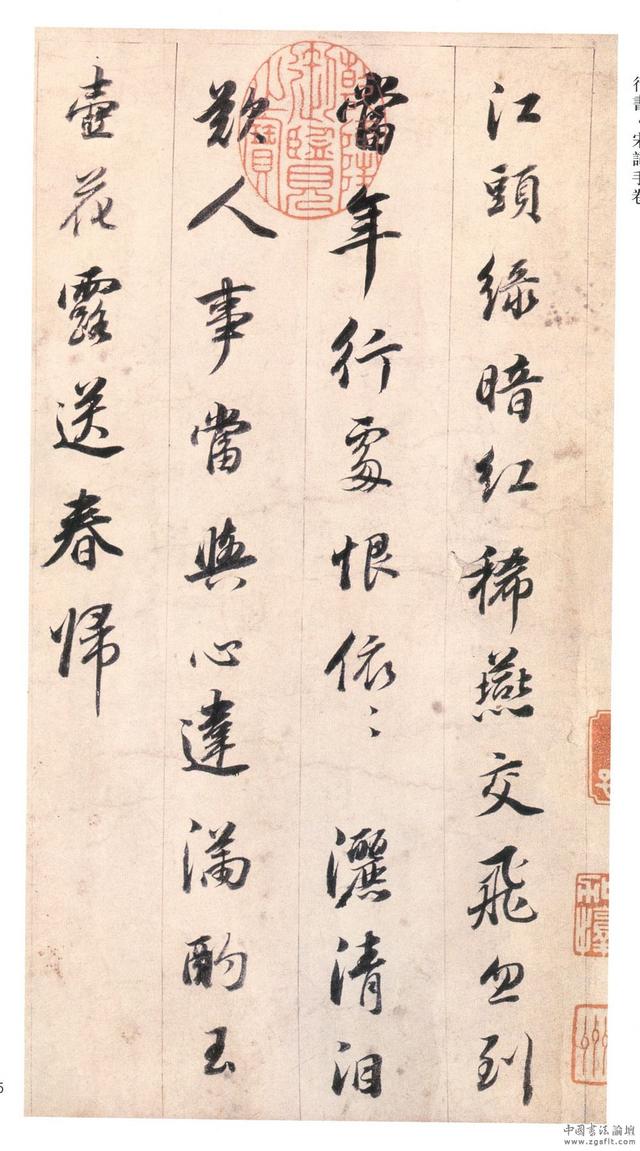 江頭綠暗紅稀燕交飛忽到
當年行處恨依〻 灑清泪
歎人事當與心違滿酌玉
壺花露送春歸
行書·宋詞手卷
中國書法論壇
www.zgsflt.com